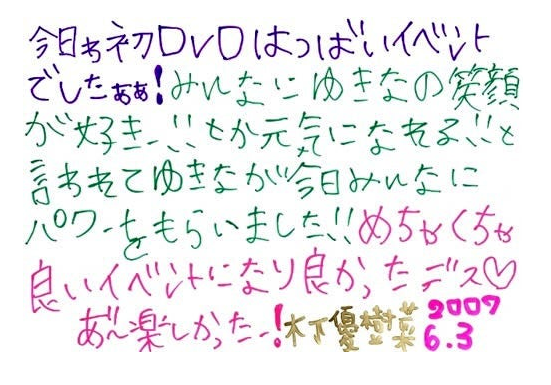 今日ゎ初DVDはっばいイベント
でしたぁぁ!みんなにゆきなの笑顔
が好きー!!とか元気になれる!!と
言われてゆきなが今日みんなに
パワーをもらいました!!めちゃくちゃ
良いイベントになり良かったデス♡
あ゛〜楽しかったー!木下優樹菜 2009
6.3